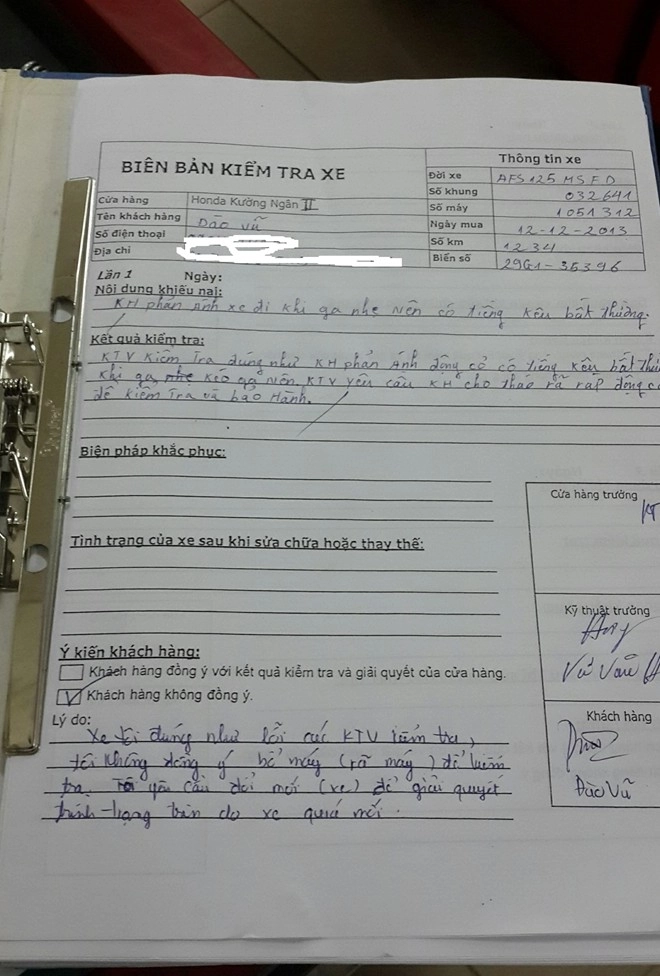 BIÊN BẢN KIỂM TRA XE
Thông tin xe
Cửa hàng Honda Kường Ngân II
Tên khách hàng Đào Vũ
Số điện thoại
Địa chỉ
Đời xe AFS125 MSFD
Số khung 032641
Số máy 1051312
Ngày mua 12-12-2013
Số km 1234
Biển số 29G1-35396
Lần 1 Ngày:
Nội dung khiếu nại:
KH phản ánh xe đi khi ga nhẹ nên có tiếng kêu bất thường.
Kết quả kiểm tra:
KTV kiểm tra đúng như KH phản ánh động cơ có tiếng kêu bất
khi ga nhẹ kéo ga nên. KTV yêu cầu KH cho tháo rã ráp động cơ
để kiểm tra và bảo hành.
Biện pháp khắc phục:
Tình trạng của xe sau khi sửa chữa hoặc thay thế:
Ý kiến khách hàng:
Khách hàng đồng ý với kết quả kiểm tra và giải quyết của cửa hàng.
V Khách hàng không đồng ý.
Lý do:
Xe tôi đúng như lỗi các KTV kiểm tra,
tôi không đồng ý bổ máy (rã máy) để kiểm
tra. Tôi yêu cầu đổi mới (xe) để giải quyết
tình trạng trên do xe quá mới.
Cửa hàng trưởng
KT
Kỹ thuật trưởng
Vũ Văn
Khách hàng
Đào Vũ